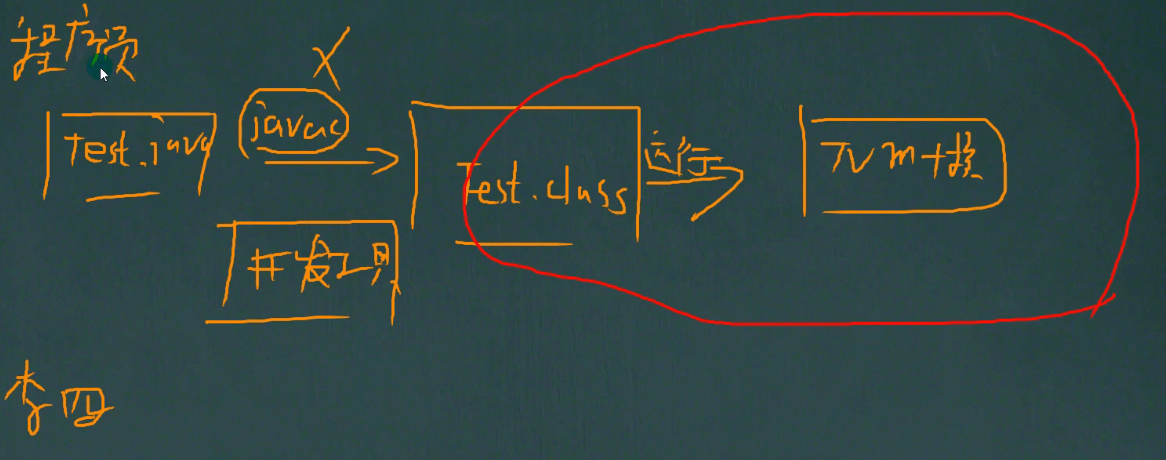 程序员
Test.java
javac
X
开发工具
Test.class
运行
JVM+核
李四